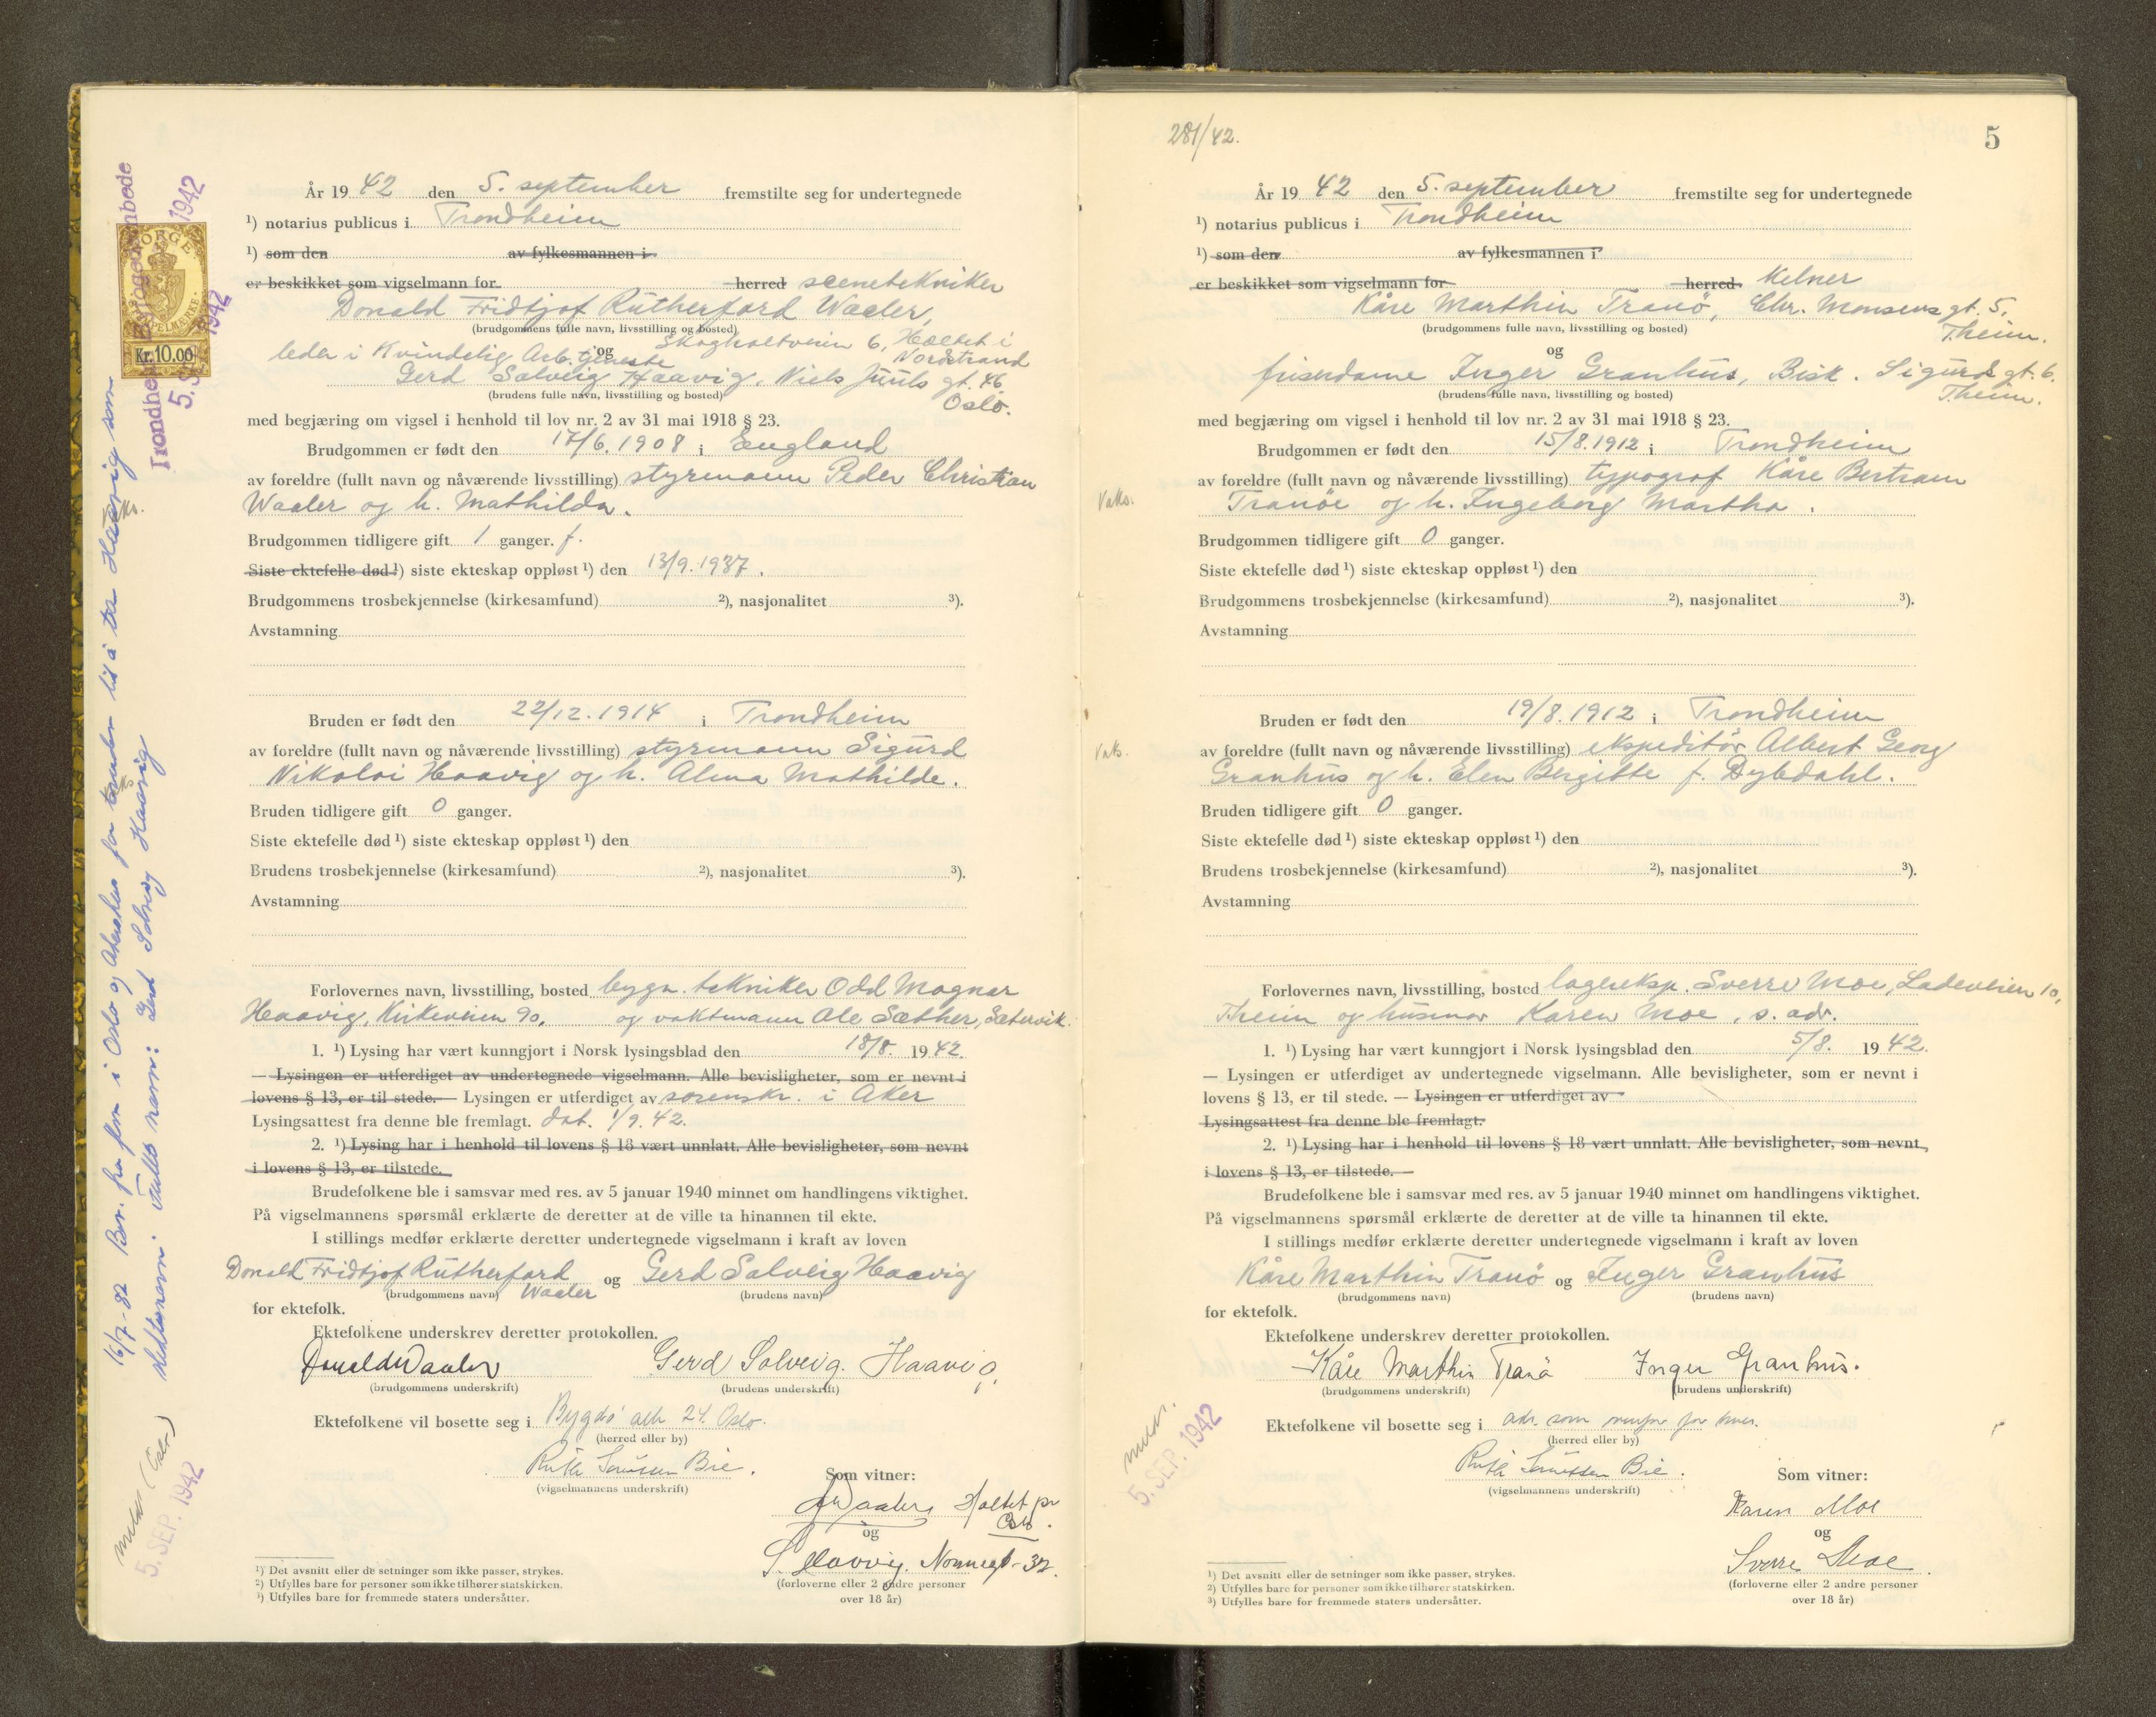 År 19 42 den 5. september fremstilte seg for undertegnede
¹) notarius publicus i Trondheim
¹) som den av fylkesmannen i
er beskikket som vigselmann for herred scenetekniker
Donald Fridtjof Rutherford Waaler,
(brudgommens fulle navn, livsstilling og bosted)
Skogholtveien 6, Holtet i
Nordstrand
og
leder i Kvindelig Arb.tjeneste
Gerd Solveig Haavig, Niels Juuls gt. 46
Oslo.
(brudens fulle navn, livsstilling og bosted)
med begjæring om vigsel i henhold til lov nr. 2 av 31 mai 1918 § 23.
Brudgommen er født den 17/6. 1908 i England
av foreldre (fullt navn og nåværende livsstilling) styrmann Peder Christian
Waaler og h. Mathilda.
Brudgommen tidligere gift 1 ganger. f.
Siste ektefelle død ¹) siste ekteskap oppløst ¹) den 13/9. 1937.
Brudgommens trosbekjennelse (kirkesamfund) ²), nasjonalitet ³).
Avstamning
Bruden er født den 22/12. 1914 i Trondheim
av foreldre (fullt navn og nåværende livsstilling) styrmann Sigurd
Nikolai Haavig og h. Alma Mathilde.
Bruden tidligere gift 0 ganger.
Siste ektefelle død ¹) siste ekteskap oppløst ¹) den
Brudens trosbekjennelse (kirkesamfund) ²), nasjonalitet ³).
Avstamning
Forlovernes navn, livsstilling, bosted bygn.tekniker Odd Magnar
Haavig, Kirkeveien 90. og vaktmann Ole Sæther, Sætervik.
1. ¹) Lysing har vært kunngjort i Norsk lysingsblad den 18/8. 19 42.
— Lysingen er utferdiget av undertegnede vigselmann. Alle bevisligheter, som er nevnt i
lovens § 13, er til stede. — Lysingen er utferdiget av sorenskr. i Aker
Lysingsattest fra denne ble fremlagt. dat. 1/9. 42.
2. ¹) Lysing har i henhold til lovens § 18 vært unnlatt. Alle bevisligheter, som nevnt
i lovens § 13, er tilstede.
Brudefolkene ble i samsvar med res. av 5 januar 1940 minnet om handlingens viktighet.
På vigselmannens spørsmål erklærte de deretter at de ville ta hinannen til ekte.
I stillings medfør erklærte deretter undertegnede vigselmann i kraft av loven
Donald Fridtjof Rutherford Waaler og Gerd Solveig Haavig
(brudgommens navn) (brudens navn)
for ektefolk.
Ektefolkene underskrev deretter protokollen.
Donald Waaler Gerd Solveig Haavig.
(brudgommens underskrift) (brudens underskrift)
Ektefolkene vil bosette seg i Bygdø alle 24. Oslo.
(herred eller by)
Ruth Smissen Bie.
(vigselmannens underskrift)
Som vitner:
Waaler, Holtet pr
Oslo.
og
S. Haavig. Nonnegt - 32.
(forloverne eller 2 andre personer
over 18 år)
¹) Det avsnitt eller de setninger som ikke passer, strykes.
²) Utfylles bare for personer som ikke tilhører statskirken.
³) Utfylles bare for fremmede staters undersåtter.
NORGE
STEMPELMERKE.
Kr. 10.00
Trondheim Byfogedembede
5. SEP. 1942
16/7-82 Bev. fra fm i Oslo og Akershus for bruden til å ta Haavig som
slektsnavn. Fulls navn: Gerd Solveig Haavig
Vaks.
(Oslo)
5. SEP. 1942
281/42.
5
År 19 42 den 5. september fremstilte seg for undertegnede
¹) notarius publicus i Trondheim
¹) som den av fylkesmannen i
er beskikket som vigselmann for herred Kelner
Kåre Marthin Tranö, Chr. Monsens gt. 5,
T.heim.
(brudgommens fulle navn, livsstilling og bosted)
og
friserdame Inger Granhus, Bisk. Sigurds gt. 6.
T.heim.
(brudens fulle navn, livsstilling og bosted)
med begjæring om vigsel i henhold til lov nr. 2 av 31 mai 1918 § 23.
Brudgommen er født den 15/8. 1912 i Trondheim
av foreldre (fullt navn og nåværende livsstilling) typograf Kåre Bertram
Vaks.
Tranöe og h. Ingeborg Martha.
Brudgommen tidligere gift 0 ganger.
Siste ektefelle død ¹) siste ekteskap oppløst ¹) den
Brudgommens trosbekjennelse (kirkesamfund) ²), nasjonalitet ³).
Avstamning
Bruden er født den 19/8. 1912 i Trondheim
Vaks.
av foreldre (fullt navn og nåværende livsstilling) ekspeditör Albert Georg
Granhus og h. Elen Bergitte f. Dybdahl.
Bruden tidligere gift 0 ganger.
Siste ektefelle død ¹) siste ekteskap oppløst ¹) den
Brudens trosbekjennelse (kirkesamfund) ²), nasjonalitet ³).
Avstamning
Forlovernes navn, livsstilling, bosted lagereksp. Sverre Moe, Ladeveien 10,
T.heim og husmor Karen Moe, s. adr.
1. ¹) Lysing har vært kunngjort i Norsk lysingsblad den 5/8. 19 42.
— Lysingen er utferdiget av undertegnede vigselmann. Alle bevisligheter, som er nevnt i
lovens § 13, er til stede. — Lysingen er utferdiget av
Lysingsattest fra denne ble fremlagt.
2. ¹) Lysing har i henhold til lovens § 18 vært unnlatt. Alle bevisligheter, som nevnt
i lovens § 13, er tilstede. —
Brudefolkene ble i samsvar med res. av 5 januar 1940 minnet om handlingens viktighet.
På vigselmannens spørsmål erklærte de deretter at de ville ta hinannen til ekte.
I stillings medfør erklærte deretter undertegnede vigselmann i kraft av loven
Kåre Marthin Tranö og Inger Granhus
(brudgommens navn) (brudens navn)
for ektefolk.
Ektefolkene underskrev deretter protokollen.
Kåre Marthin Tranö Inger Granhus.
(brudgommens underskrift) (brudens underskrift)
Ektefolkene vil bosette seg i adr. som ovenfor for hver.
(herred eller by)
Ruth Smissen Bie.
(vigselmannens underskrift)
Som vitner:
Karen Moe
og
Sverre Moe
(forloverne eller 2 andre personer
over 18 år)
5. SEP. 1942
¹) Det avsnitt eller de setninger som ikke passer, strykes.
²) Utfylles bare for personer som ikke tilhører statskirken.
³) Utfylles bare for fremmede staters undersåtter.